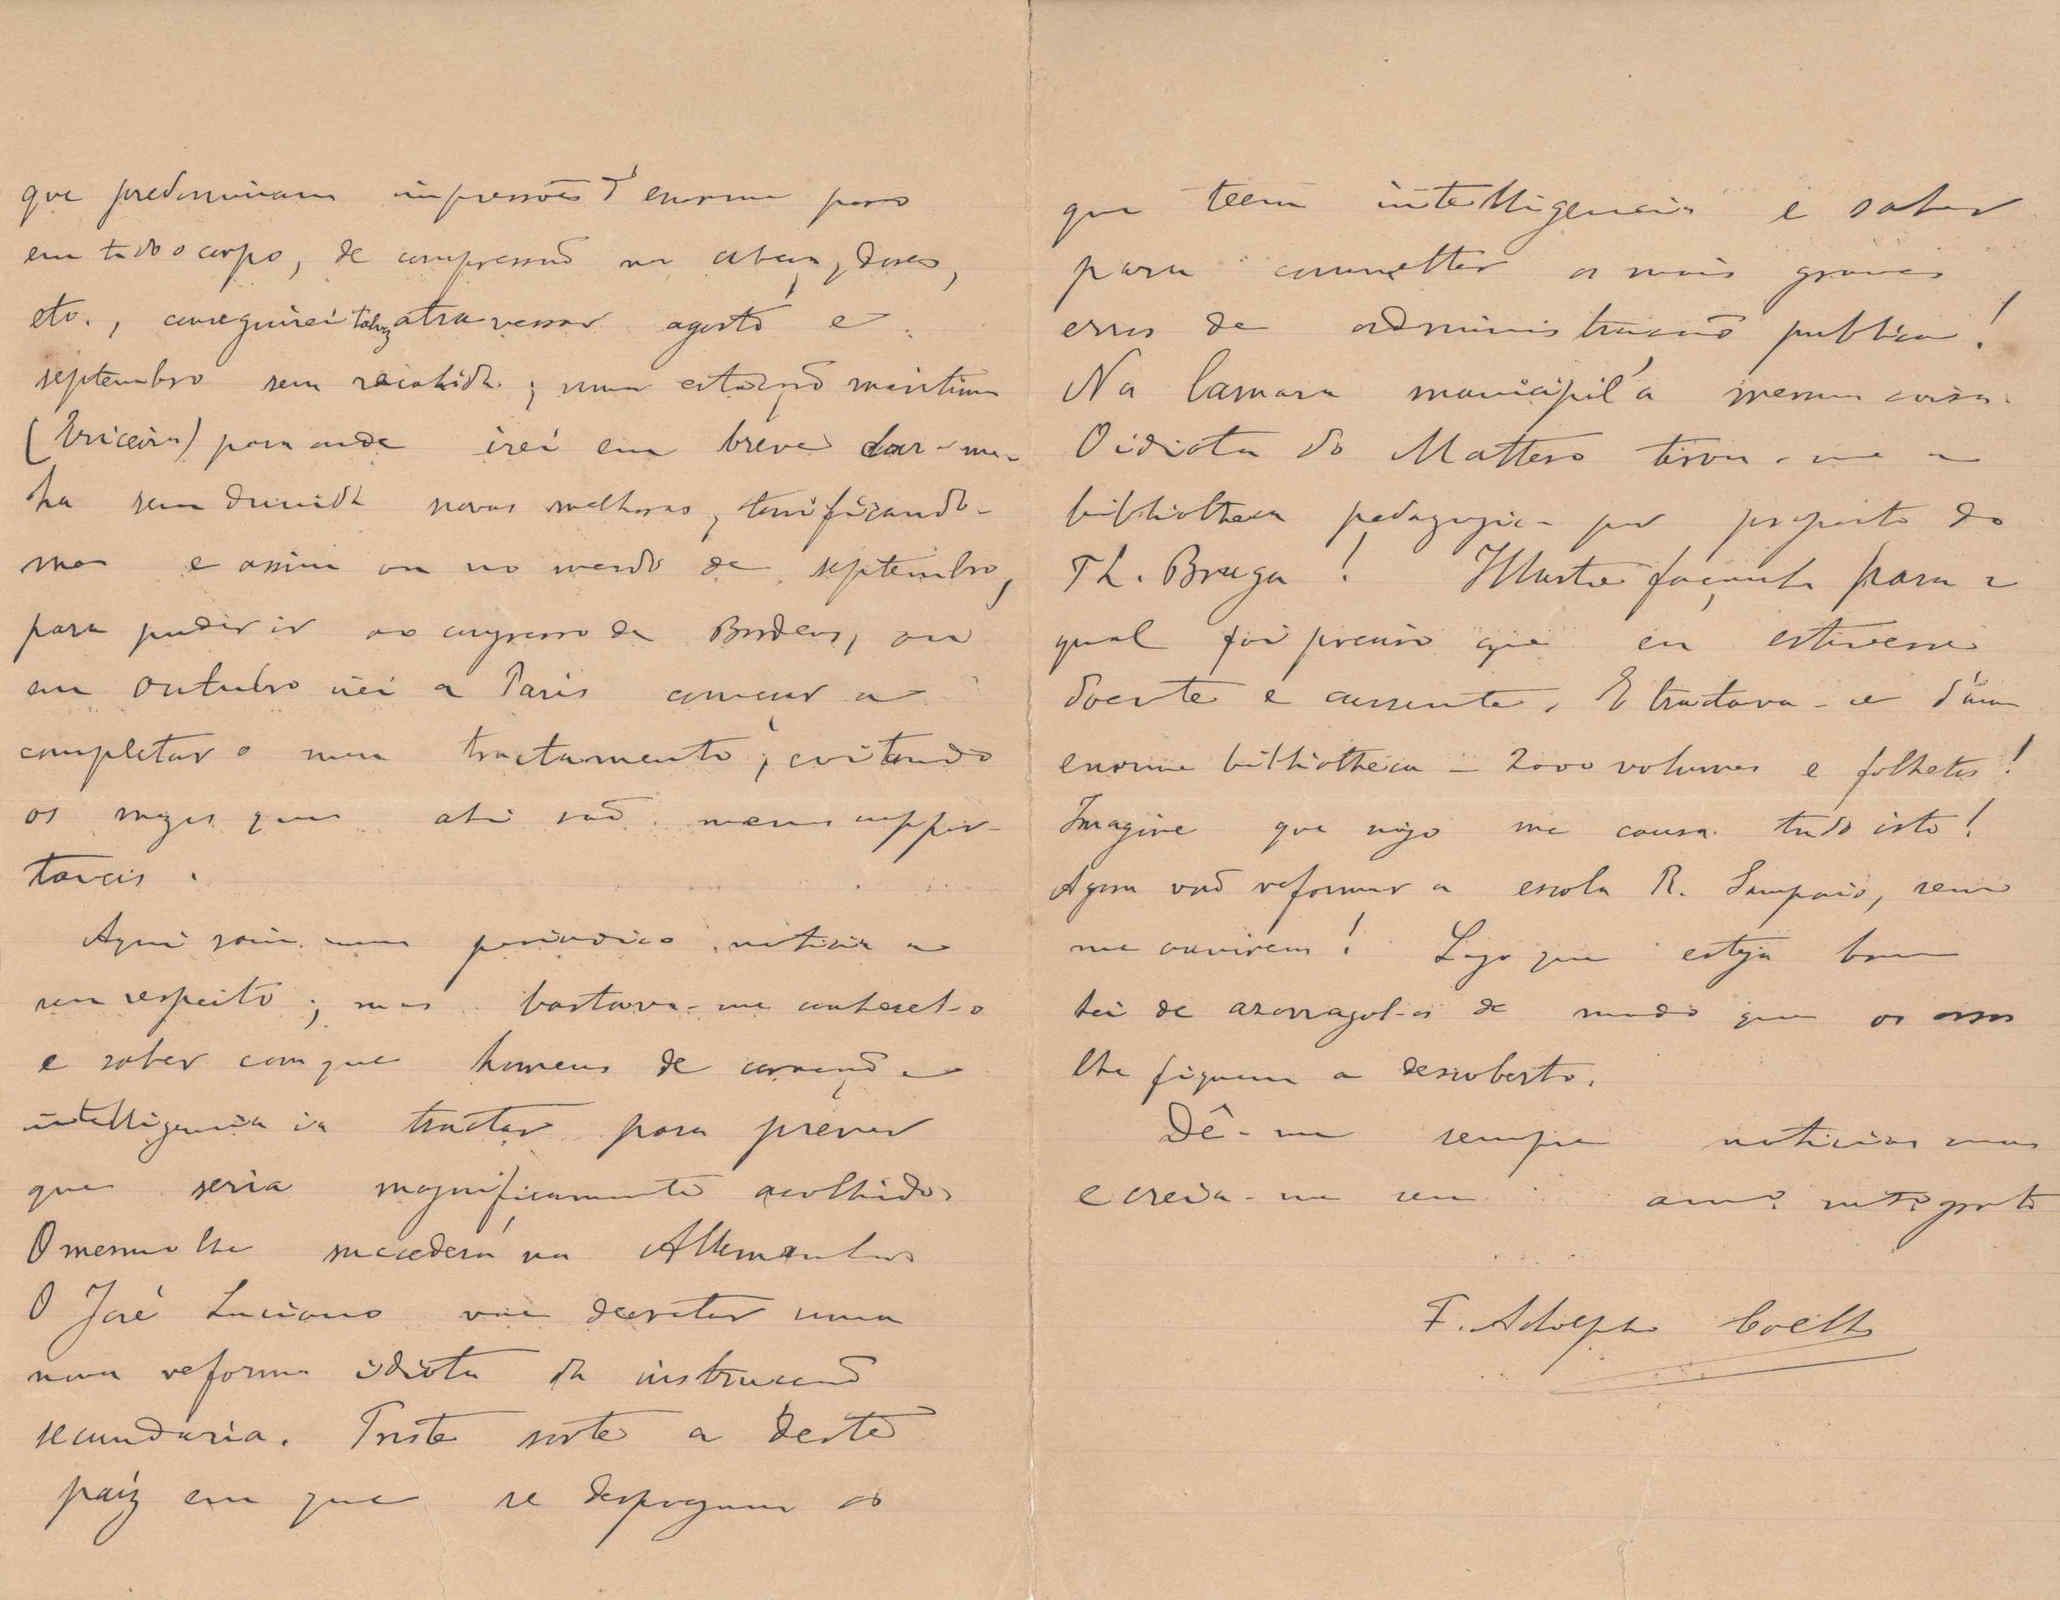 que predominam impressões d'enorme peso
em todo o corpo, de compressão na cabeça, dores,
etc., conseguirei talvez atravessar agosto e
septembro sem recahida; uma estação maritima
(Ericeira) para onde irei em breve dar-me-
ha sem duvida novas melhoras, tonificando-
me e assim ou no meado de septembro,
para poder ir ao congresso de Bordeus, ou
em outubro irei a Paris começar a
completar o meu tractamento, evitando
os mezes que ahi são menos suppor-
taveis.
Aqui saiu num periodico noticia a
seu respeito; mas bastava-me conhecel-o
e saber com que homens de coração e
intelligencia ia tractar para prever
que seria magnificamente acolhido.
O mesmo lhe succederá na Allemanha.
O José Luciano vae decretar uma
nova reforma idiota da instrucção
secundaria. Triste sorte a deste
paiz em que se despregam os
que teem intelligencia e saber
para commetter os mais graves
erros de administracão publica!
Na Camara municipal a mesma coisa.
O idiota do Mattoso tirou-me a
bibliotheca pedagogica por proposta do
Th. Braga! Illustre façanha para a
qual foi preciso que eu estivesse
doente e aussente. E tractava-se d'uma
enorme bibliotheca – 2000 volumes e folhetos!
Imagine que nojo me causa tudo isto!
Agora vão reformar a escola R. Sampaio, sem
me ouvirem! Logo que esteja bom
hei de azorragal-os de modo que os ossos
lhe fiquem a descoberto.
Dê-me sempre noticias suas
e creia-me seu am.º mt.º grato
F. Adolpho Coelho